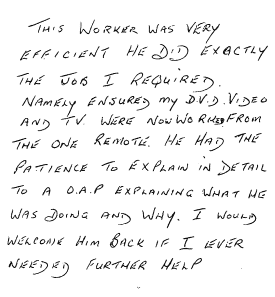 THIS WORKER WAS VERY
EFFICIENT HE DID EXACTLY
THE JOB I REQUIRED.
NAMELY ENSURED MY D.V.D. VIDEO
AND TV. WERE NOW WORKED FROM
THE ONE REMOTE. HE HAD THE
PATIENCE TO EXPLAIN IN DETAIL
TO A O.A.P EXPLAINING WHAT HE
WAS DOING AND WHY. I WOULD
WELCOME HIM BACK IF I EVER
NEEDED FURTHER HELP